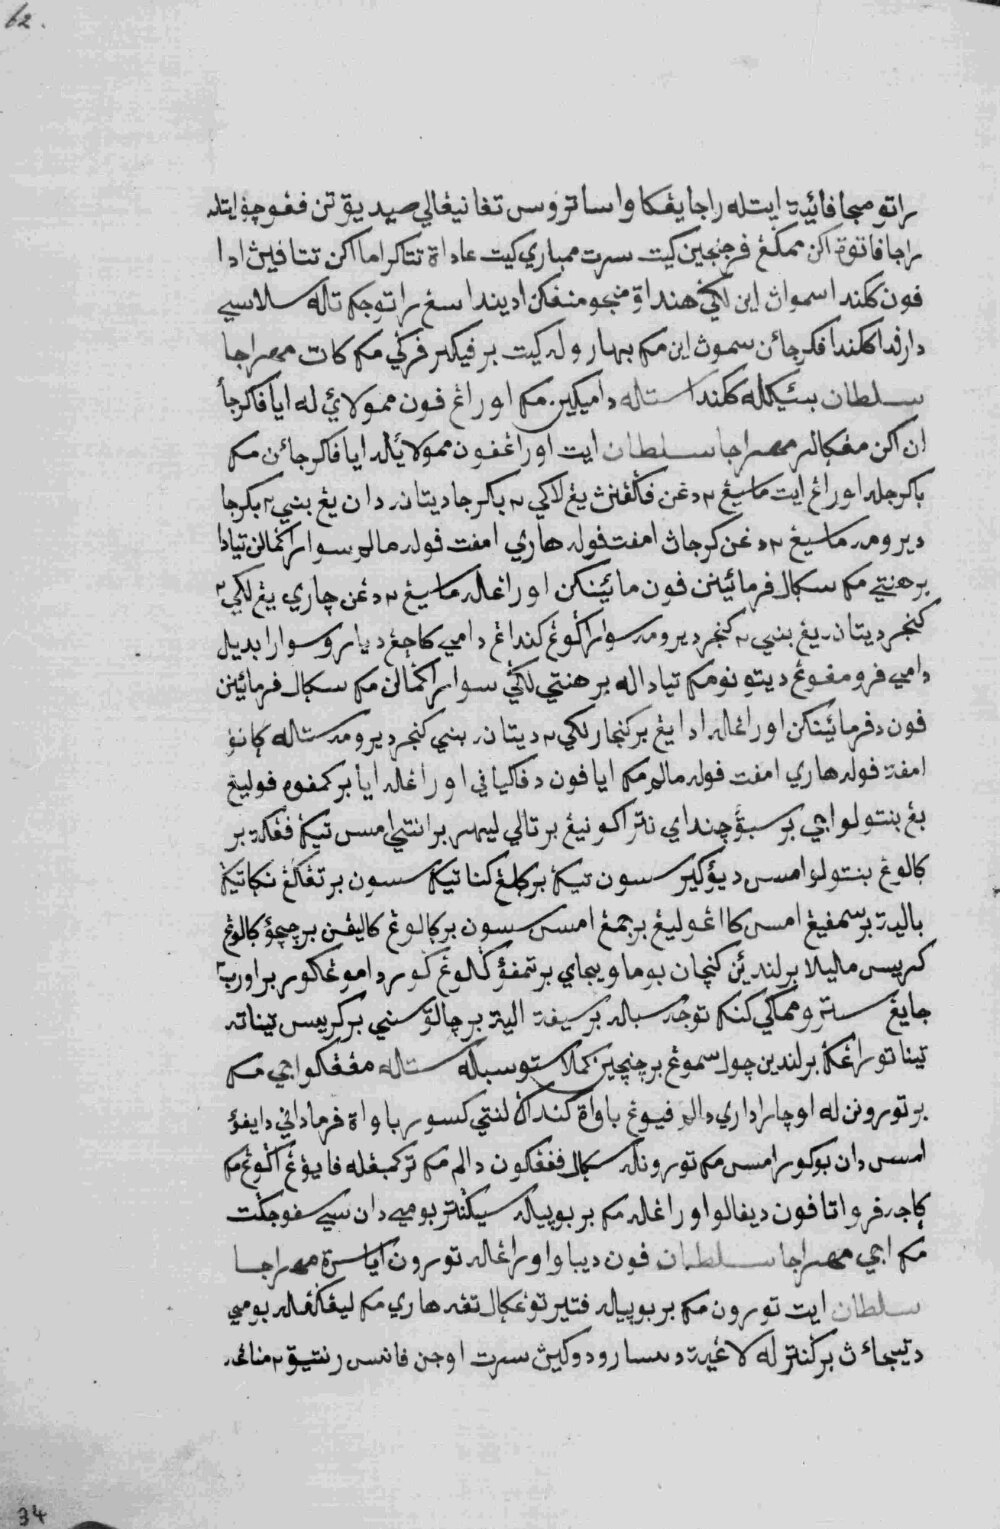 62.
راتو مجافائيت ايتله راجا يڠكا واساتروس تڠا نيڠالي صيديق تن ڤڠوچڤ ايتله
راجا فاتوة اكن ممكڠ فرججين كيت سرت ممباري كيت عادة تتاكراما اكن تتافين ادا
فون كلندا سمواڽ اين لڬي هنداق منجومنفكن اديندا سڠ راتو جك تاله سلاسي
درڤدا كلندا فكرجائن سموڽ اين مك بهارو له كيت برفيكر فركي مك كات مهراجا
سلطان بئيكله كلندا ستله دميكين مك اورڠ فون ممولائي له ايا فاكرجأ
ان اكن مڠكاله مهراجا سلطان ايت اورڠ فون ممولائله ايا فاكرجائن مك
باكرجله اورڠ ايت ماسيڠ ٢ دڠن فاڠكتڽ يڠ لاكي ٢ باكرجا ديتانه دان يڠ بيني ٢ بكرجا
ديرومه ماسيڠ ٢ دڠن كرجاڽ امفت فوله هاري امفت فوله مالم سوارا ڬمالن تيادا
برهنتي مك سكال فرمائينن فون مائينكن اورڠله ماسيڠ ٢ دڠن چاري يڠ لكي ٢
كنجر ديتانه يڠ بيني ٢ كنجر ديرومه سوارا ڬوڠ كندڠ دامي كاچڠ ديارو سوارا بديل
دامي فرومفوڠ ديتونو مك تيادا له برهنتي لڬي سوارا ڬمالن مك سكال فرمائينن
فون دفرمائينكن اورڠله ادا يڠ بركنجار لكي ٢ ديتانه بيني كنجر ديرومه ستله ڬانڤ
امفت فوله هاري امفت فوله مالم مك ايا فون دفاكياني اورڠله ايا بركمفوه فوليڠ
بڠ بنتولو اجي برسبوٴ چنداي نتراكونيڠ برتالي ليهر برانتي امس تيك ففكت بر
كالوڠ بنتولو امس ديوٴكير سسون تيك بركلڠ كنا تيك سسون برتڠكڠ نكا تيك
باليت برسمفيڠ امس كااڠوليڠ برجمڠ امس سسون بركالوڠ كاليڤن برچچوٴ كالوڠ
كريس ماليلا برلندئن كنچان بوماويجاي برتمفوٴ ڬالوڠ كور داموڠاكور براورب٢
جايڠ سترو مماكي كنك توجه سباله برسيفة اليت برچالق سني بركريس تيناته
تيتاتوراڠك برلندين چولا سموڠ برچنچين كمالا ستوسبله ستله مڠڤكواجي مك
برتورونن له اوچارا داري دالم فيوڠ باواة كندك لنتي كسور باواة فرماداني دايڤوٴ
امس دان بوكور امس مك تورونله سكال ففڤكون دالم مك تركمبڠله فايوڠ اڬوڠ مك
ڬاجه فرواتا فون ديفالو اورڠله مك بربوڽيله سيڬنتر بومي دان سي سفوجڬت
مك اجي مهراجا سلطان فون ديباوا اورڠله تورون اياسرة مهراجا
سلطان ايت تورون مك بربوڽيله فتير توڠكال تڠه هاري مك ليڤكڤله بومي
دتيجاءڽ برڬنترله لاڠيت دسارودوكيڽ سرت اوجن فانس رنتيق ٢ منائڠ
34